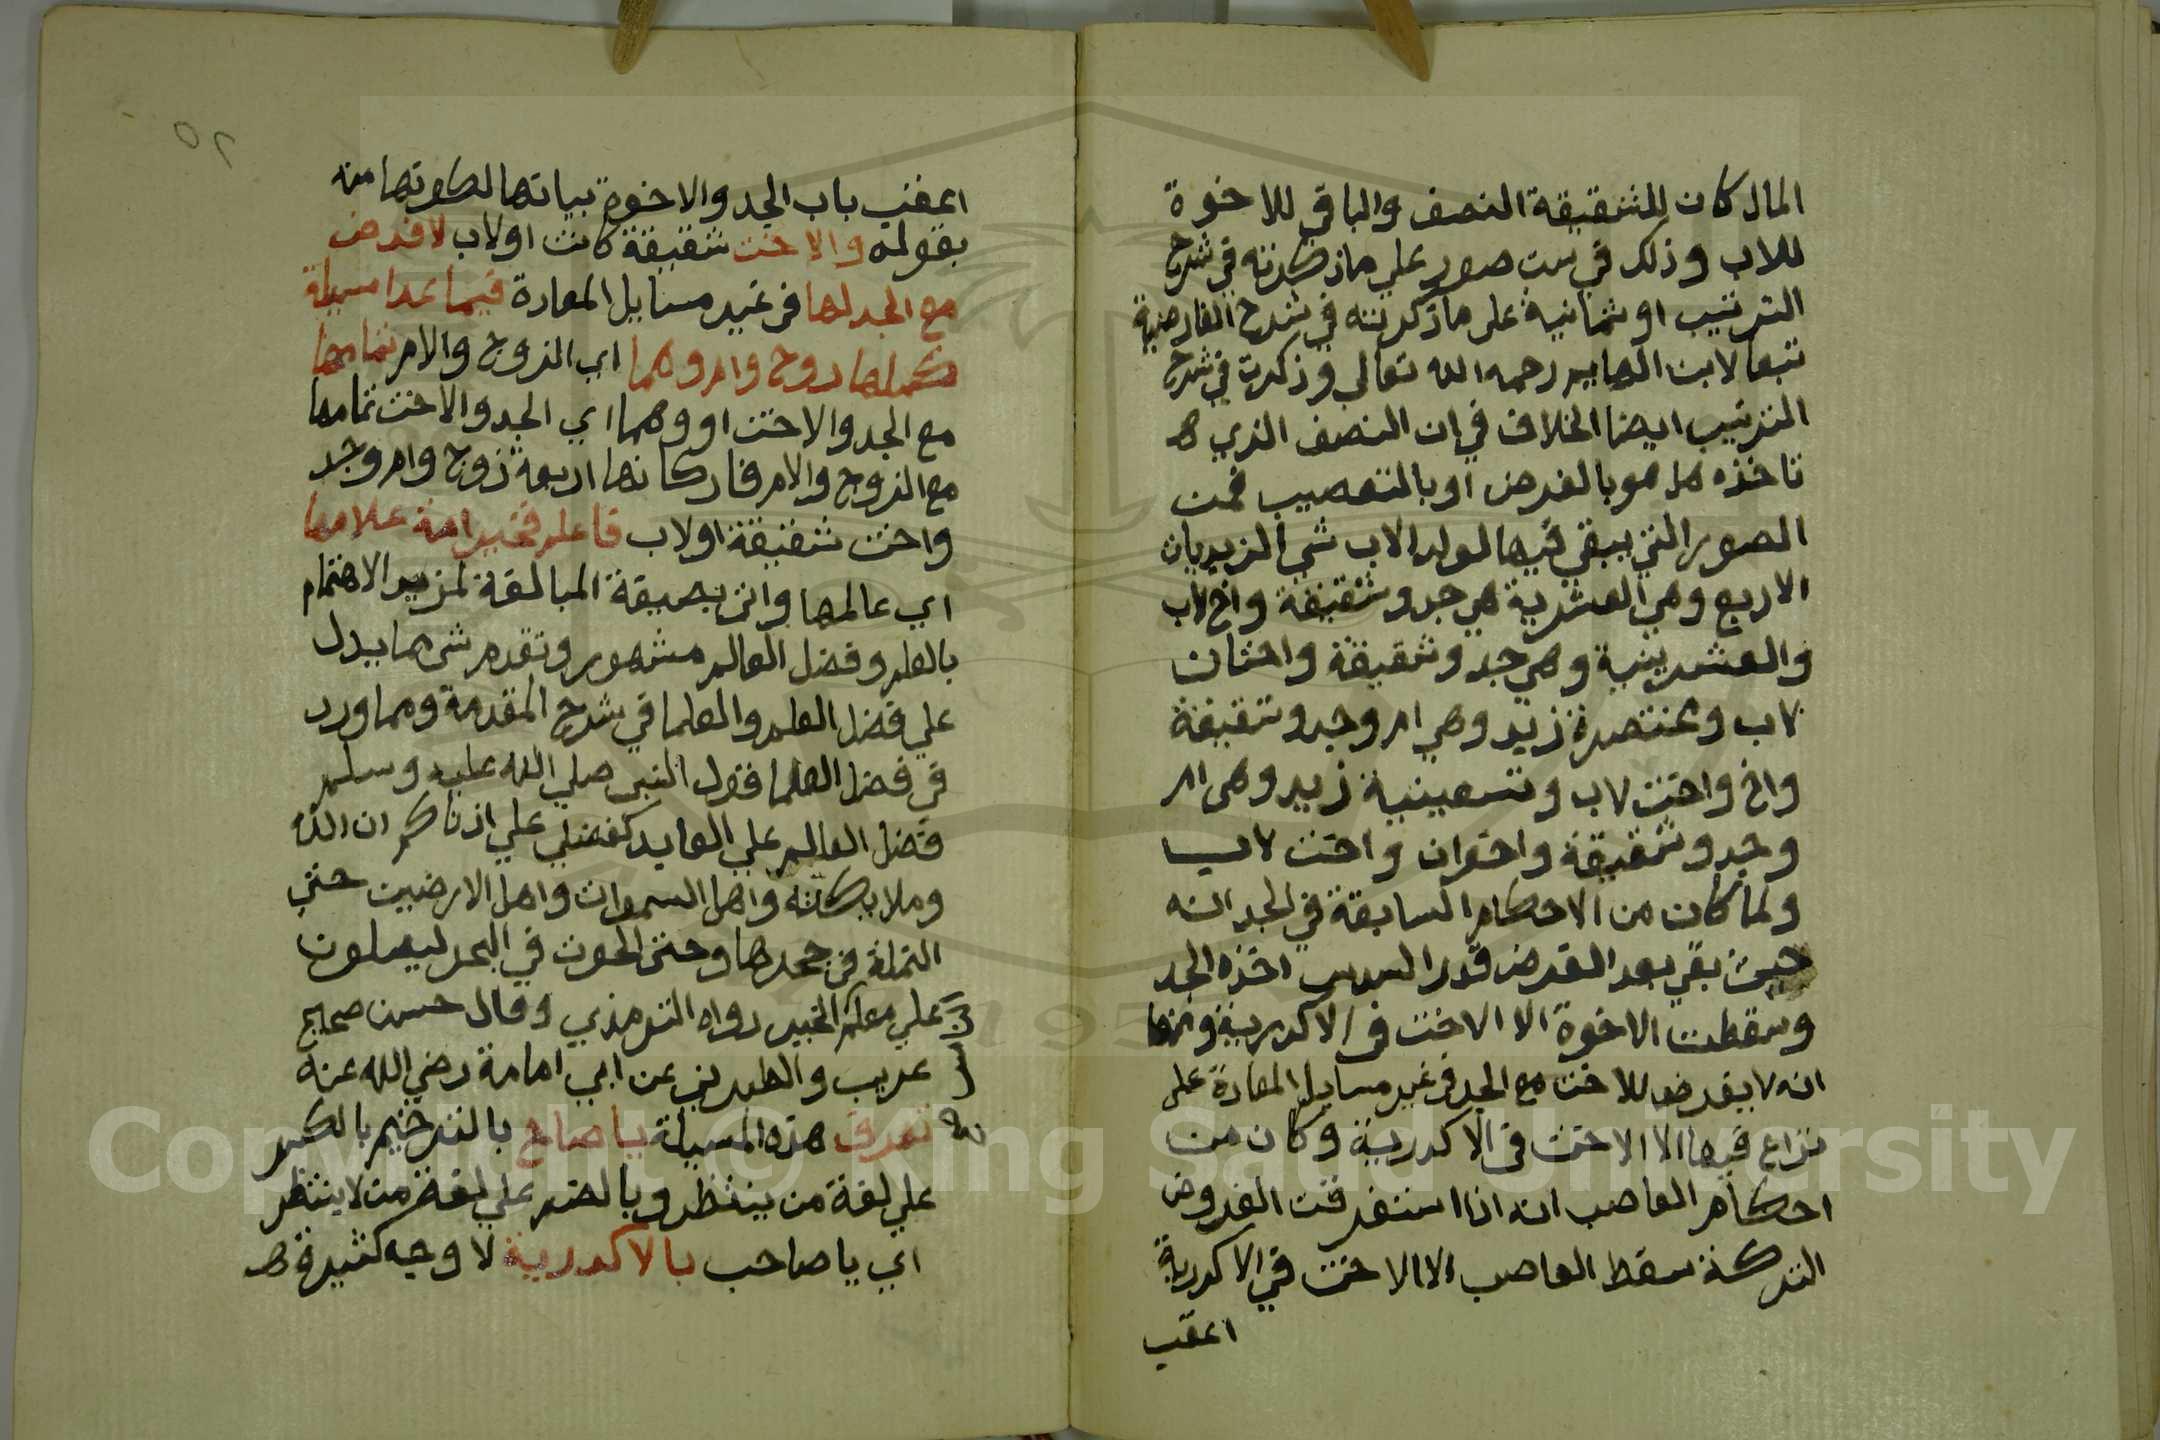 المال كان للشقيقة النصف والباقي للاخوة
للاب وذلك في ست صور على ماذكرته في شرح
الترتيب او ثمانية على ماذكرته في شرح الفارضية
تبعا لابن الهايم رحمه الله تعالى وذكرت في شرح
الترتيب ايضا الخلاف في ان النصف الذي
تاخذه هل هو بالفرض او بالتعصيب فمن
الصور التي يبقى فيها لولد الاب شي الزيديات
الاربع وهي العشرية هي جد وشقيقة واخ لاب
والعشرينية وهي جد وشقيقة واختان
لاب ومختصرة زيد وهي ام وجد وشقيقة
واخ واخت لاب وتسعينية زيد وهي ام
وجد وشقيقة واخوان واخت لاب
ولما كان من الاحكام السابقة في الجد انه
حيث بقي بعد الفرض قدر السدس اخذه الجد
وسقطت الاخوة الا الاخت في الاكدرية ومنها
انه لا يفرض للاخت مع الجد في غير مسايل المعادة على
نزاع فيها الا الاخت في الاكدرية وكان من
احكام العاصب انه اذا استغرقت الفروض
التركة سقط العاصب الا الاخت في الاكدرية
اعقب
٥٢
اعقب باب الجد والاخوة ببيانها لكونها منه
بقوله والاخت شقيقة كانت او لاب لا فرض
مع الجد لها في غير مسايل المعادة فيما عدا مسيلة
كملها زوج وام وهما اي الزوج والام تمامها
مع الجد والاخت او وهما اي الجد والاخت تمامها
مع الزوج والام فاركانها اربعة زوج وام وجد
واخت شقيقة او لاب فاعلم فخير امة علامها
اي عالمها واتى بصيغة المبالغة لمزيد الاهتمام
بالعلم وفضل العالم مشهور وتقدم شي مما يدل
على فضل العلم والعلما في شرح المقدمة ومما ورد
في فضل العلما فقول النبي صلى الله عليه وسلم
فضل العالم على العابد كفضلي على ادناكم ان الله
وملايكته واهل السموات واهل الارضين حتى
النملة في جحرها وحتى الحوت في البحر ليصلون
على معلم الخير رواه الترمذي وقال حسن صحيح
غريب والطبرني عن ابي امامة رضي الله عنه
تعرف هذه المسيلة يا صاح بالترخيم بالكسر
على لغة من ينتظر وبالضم على لغة من لا ينتظر
اي يا صاحب بالاكدرية لاوجه كثيرة
Copyright © King Saud University